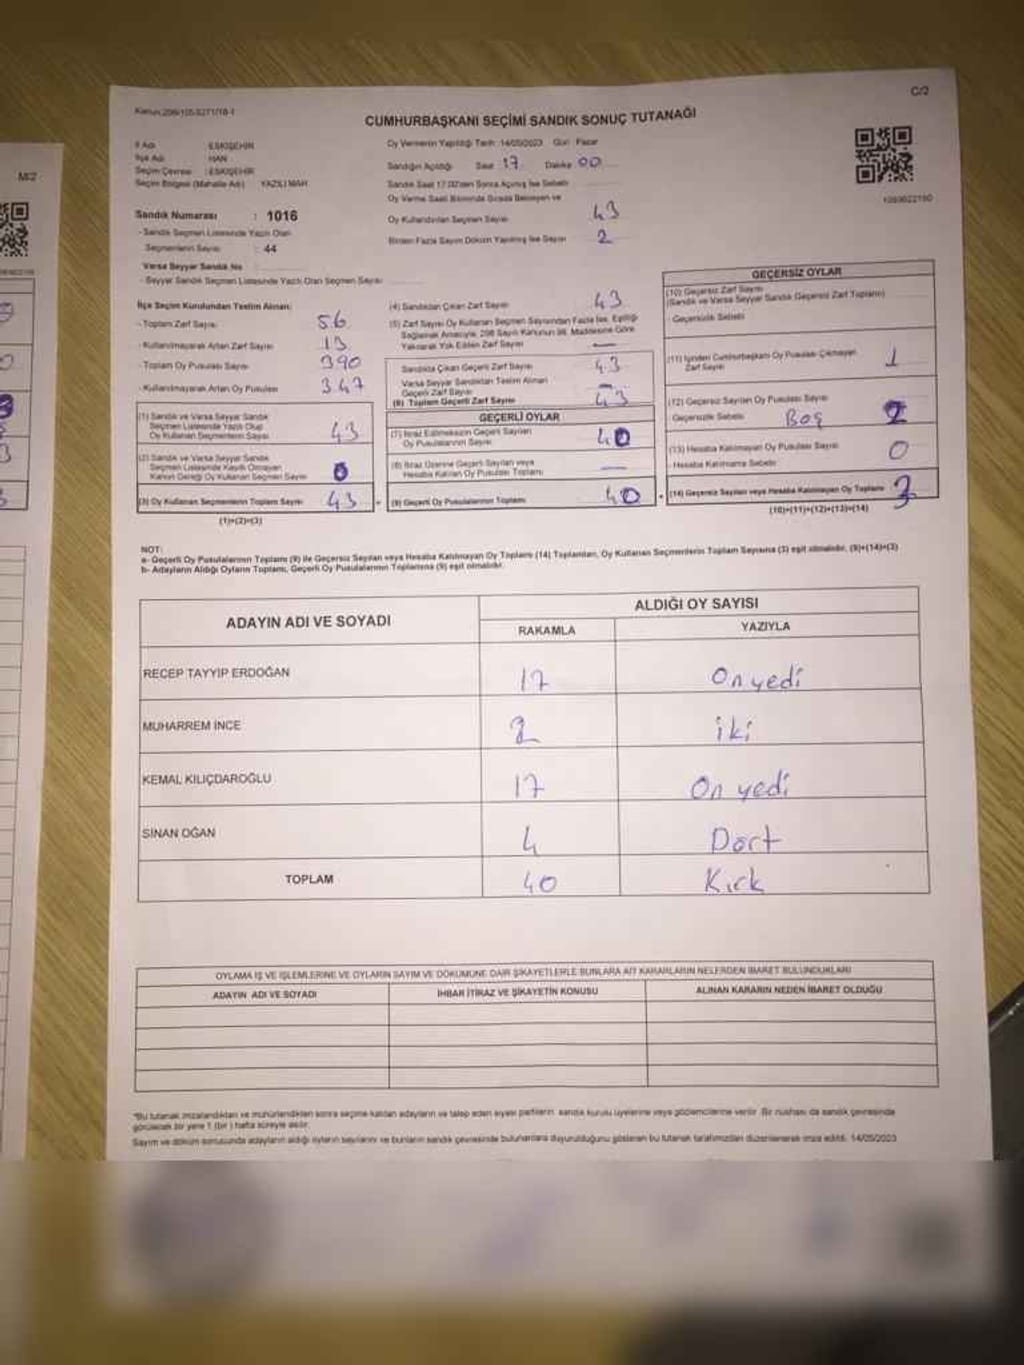 C/2
Kanun:298/105-6271/18-1
CUMHURBAŞKANI SEÇİMİ SANDIK SONUÇ TUTANAĞI
İl Adı : ESKİŞEHİR
İlçe Adı : HAN
Seçim Çevresi : ESKİŞEHİR
Seçim Bölgesi (Mahalle Adı) YAZILI MAH
Sandık Numarası : 1016
- Sandık Seçmen Listesinde Yazılı Olan
Seçmenlerin Sayısı : 44
Varsa Seyyar Sandık No
- Seyyar Sandık Seçmen Listesinde Yazılı Olan Seçmen Sayısı
Oy Vermenin Yapıldığı Tarih :14/05/2023 Gün : Pazar
Sandığın Açıldığı Saat 17 Dakika 00
Sandık Saat 17:00'den Sonra Açılmış İse Sebebi
Oy Verme Saati Bitiminde Sırada Bekleyen ve
Oy Kullandırılan Seçmen Sayısı 43
Birden Fazla Sayım Döküm Yapılmış İse Sayısı 2
M/2
İlçe Seçim Kurulundan Teslim Alınan:
- Toplam Zarf Sayısı 56
- Kullanılmayarak Artan Zarf Sayısı 13
- Toplam Oy Pusulası Sayısı 390
- Kullanılmayarak Artan Oy Pusulası 347
(1) Sandık ve Varsa Seyyar Sandık
Seçmen Listesinde Yazılı Olup
Oy Kullanan Seçmenlerin Sayısı 43
(2) Sandık ve Varsa Seyyar Sandık
Seçmen Listesinde Kayıtlı Olmayan
Kanun Gereği Oy Kullanan Seçmen Sayısı 0
(3) Oy Kullanan Seçmenlerin Toplam Sayısı 43
(1)+(2)=(3)
(4) Sandıktan Çıkan Zarf Sayısı 43
(5) Zarf Sayısı Oy Kullanan Seçmen Sayısından Fazla İse, Eşitliği
Sağlamak Amacıyla, 298 Sayılı Kanunun 98. Maddesine Göre
Yakılarak Yok Edilen Zarf Sayısı —
Sandıkta Çıkan Geçerli Zarf Sayısı 43
Varsa Seyyar Sandıktan Teslim Alınan
Geçerli Zarf Sayısı —
(6) Toplam Geçerli Zarf Sayısı 43
GEÇERLİ OYLAR
(7) İtiraz Edilmeksizin Geçerli Sayılan
Oy Pusulalarının Sayısı 40
(8) İtiraz Üzerine Geçerli Sayılan veya
Hesaba Katılan Oy Pusulası Toplamı —
(9) Geçerli Oy Pusulalarının Toplamı 40
GEÇERSİZ OYLAR
(10) Geçersiz Zarf Sayısı
(Sandık ve Varsa Seyyar Sandık Geçersiz Zarf Toplamı)
- Geçersizlik Sebebi
(11) İçinden Cumhurbaşkanı Oy Pusulası Çıkmayan
Zarf Sayısı 1
(12) Geçersiz Sayılan Oy Pusulası Sayısı 2
- Geçersizlik Sebebi Boş
(13) Hesaba Katılmayan Oy Pusulası Sayısı 0
- Hesaba Katılmama Sebebi
(14) Geçersiz Sayılan veya Hesaba Katılmayan Oy Toplamı 3
(10)+(11)+(12)+(13)=(14)
NOT:
a- Geçerli Oy Pusulalarının Toplamı (9) ile Geçersiz Sayılan veya Hesaba Katılmayan Oy Toplamı (14) Toplamları, Oy Kullanan Seçmenlerin Toplam Sayısına (3) eşit olmalıdır. (9)+(14)=(3)
b- Adayların Aldığı Oyların Toplamı, Geçerli Oy Pusulalarının Toplamına (9) eşit olmalıdır.
ADAYIN ADI VE SOYADI ALDIĞI OY SAYISI
RAKAMLA YAZIYLA
RECEP TAYYİP ERDOĞAN 17 Onyedi
MUHARREM İNCE 2 iki
KEMAL KILIÇDAROĞLU 17 On yedi
SİNAN OĞAN 4 Dört
TOPLAM 40 Kırk
OYLAMA İŞ VE İŞLEMLERİNE VE OYLARIN SAYIM VE DÖKÜMÜNE DAİR ŞİKAYETLERLE BUNLARA AİT KARARLARIN NELERDEN İBARET BULUNDUKLARI
ADAYIN ADI VE SOYADI İHBAR İTİRAZ VE ŞİKAYETİN KONUSU ALINAN KARARIN NEDEN İBARET OLDUĞU
*Bu tutanak imzalandıktan ve mühürlendikten sonra seçime katılan adayların ve talep eden siyasi partilerin sandık kurulu üyelerine veya gözlemcilerine verilir. Bir nüshası da sandık çevresinde
görülecek bir yere 1 (bir) hafta süreyle asılır.
Sayım ve döküm sonucunda adayların aldığı oyların sayılarını ve bunların sandık çevresinde bulunanlara duyurulduğunu gösteren bu tutanak tarafımızdan düzenlenerek imza edildi. 14/05/2023